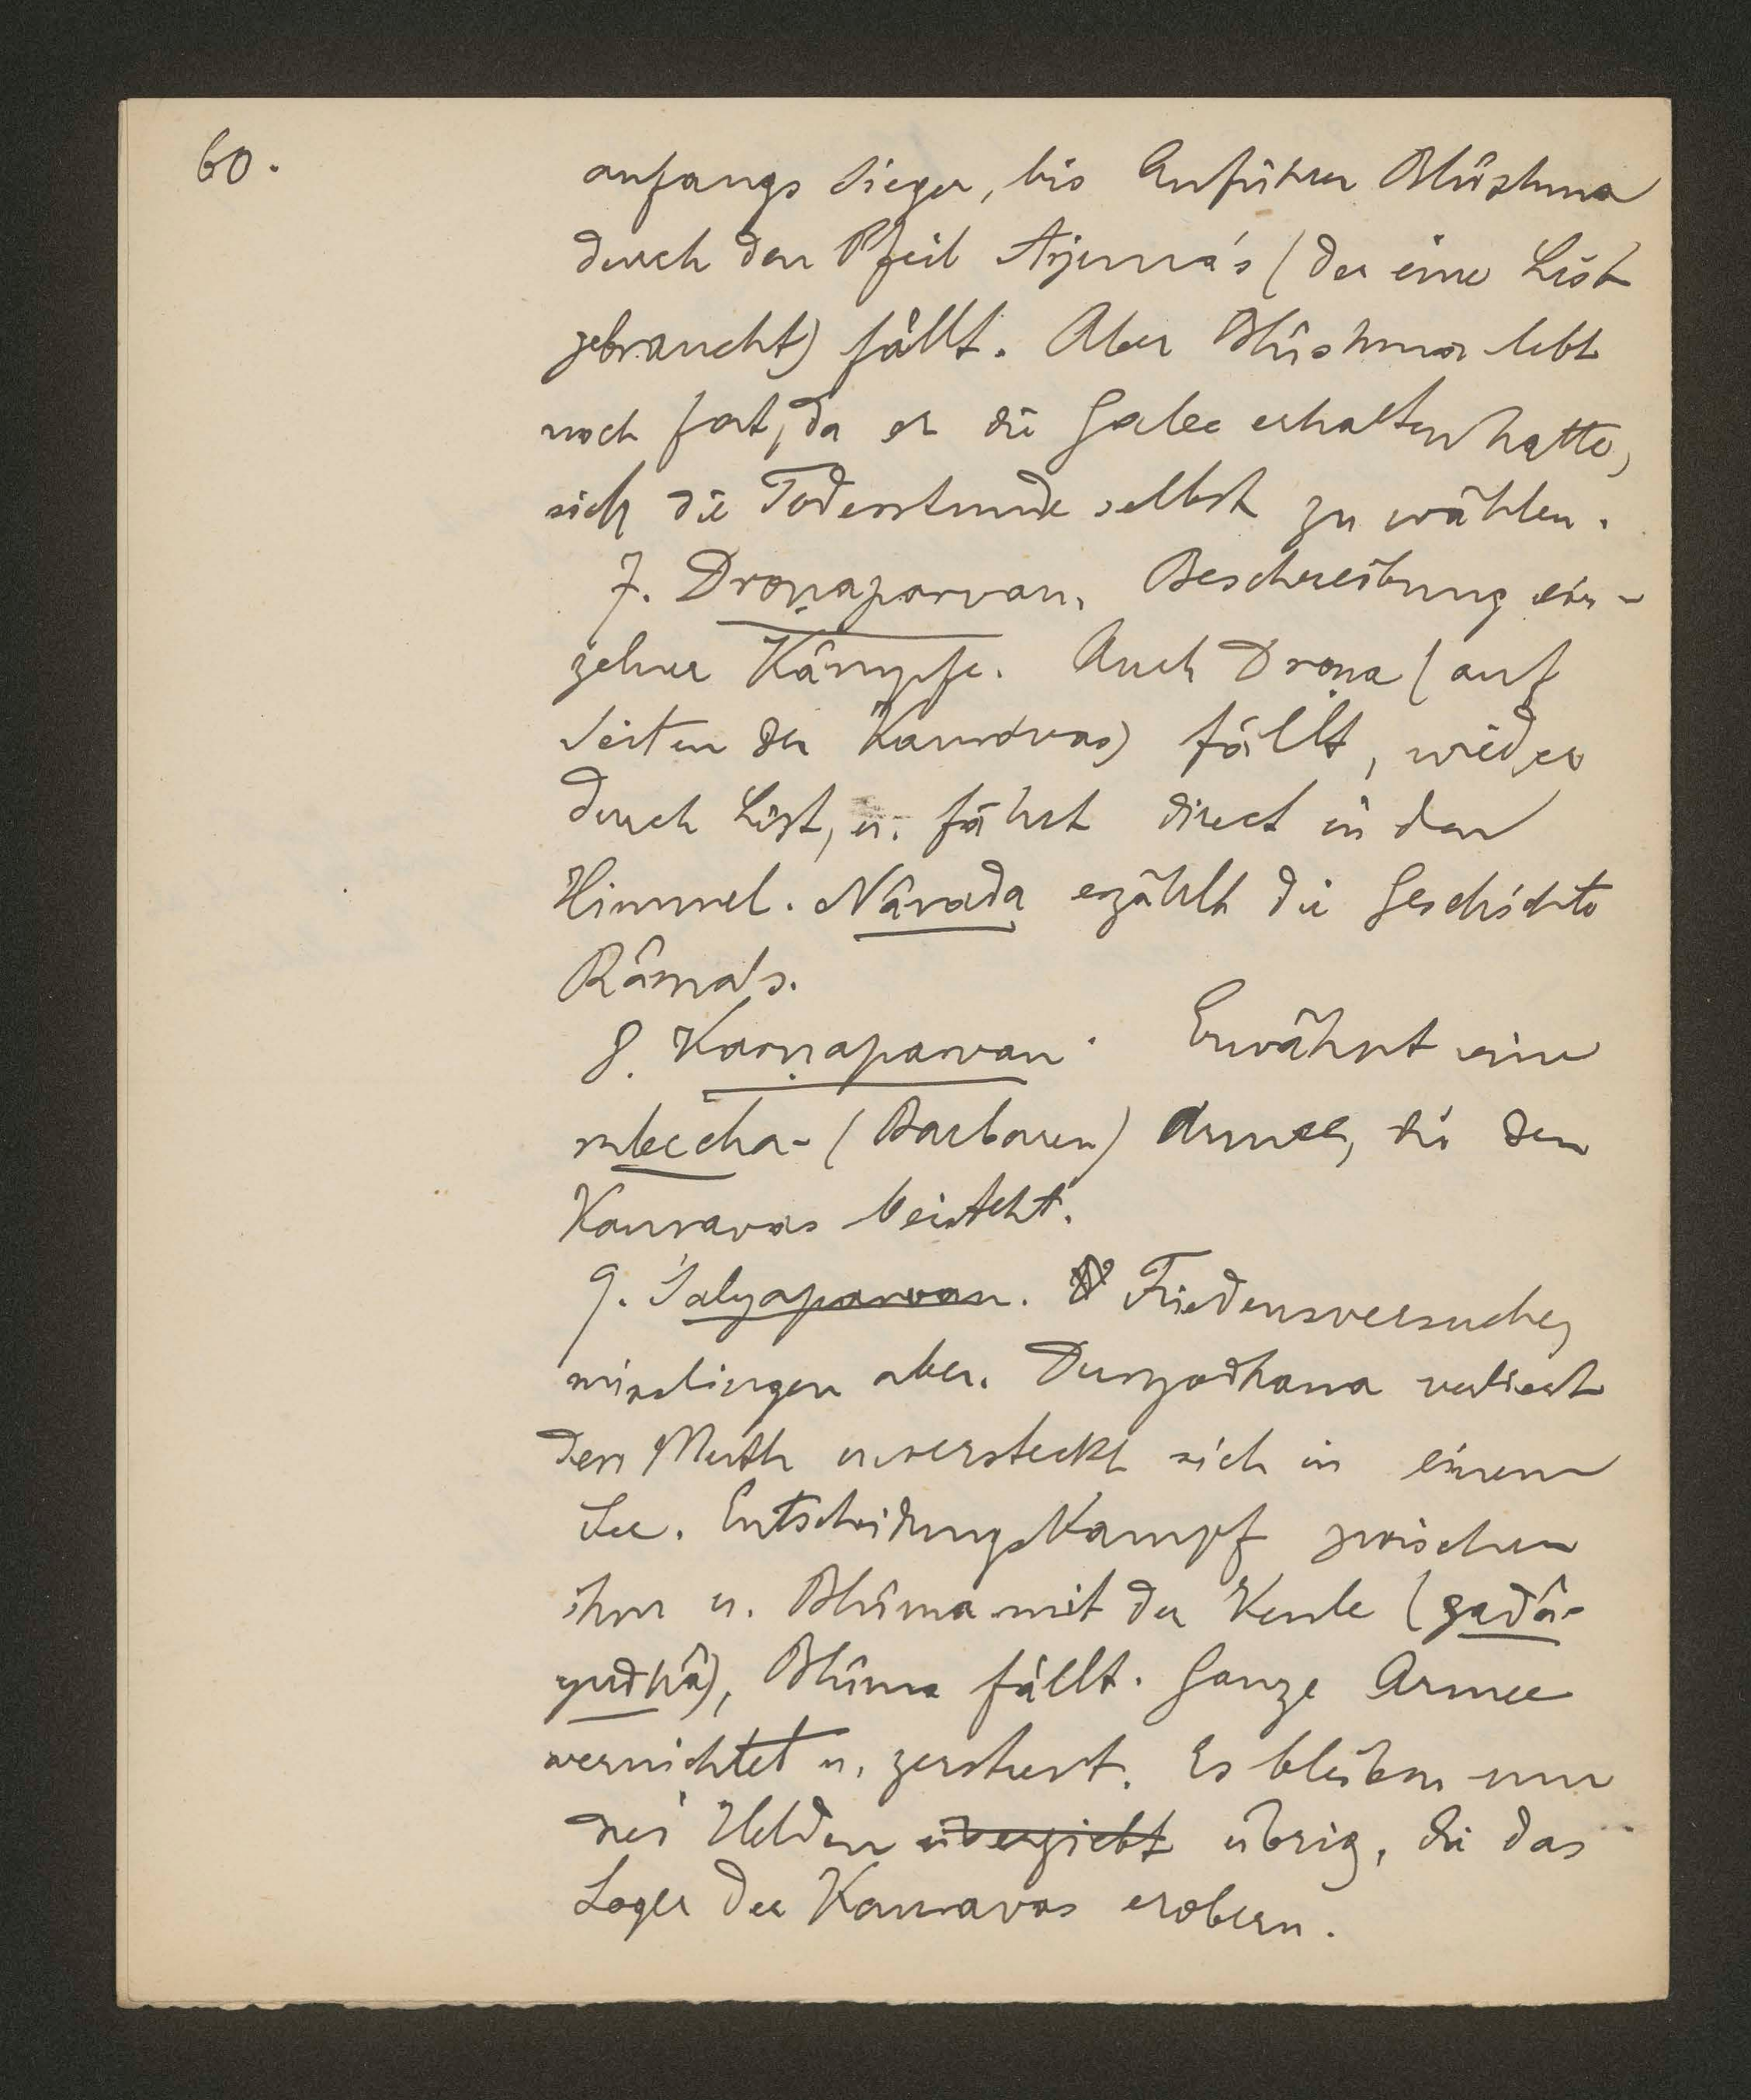 60.
anfangs Sieger, bis Anführer Bhîshma
durch den Pfeil Arjuna's (der eine List
gebraucht) fällt. Aber Bhîshma lebt
noch fort, da er die Gabe erhalten hatte,
sich die Todesstunde selbst zu wählen.
7. Droṇaparvan. Beschreibung ein-
zelner Kämpfe. Auch Droṇa (auf
Seiten der Kauravas) fällt, wieder
durch List, u. fährt direct in den
Himmel. Nârada erzählt die Geschichte
Râma's.
8. Karṇaparvan. Erwähnt eine
mleccha- (Barbaren) Armee, die den
Kauravas beisteht.
9. Śalyaparvan. Friedensversuche,
misslingen aber. Duryodhana verliert
den Muth u. versteckt sich in einem
See. Entscheidungskampf zwischen
ihm u. Bhîma mit der Keule (gadâ-
yudhâ), Bhîma fällt. Ganze Armee
vernichtet u. zerstreut. Es bleiben nur
drei Helden übrig, die das
Lager der Kauravas erobern.